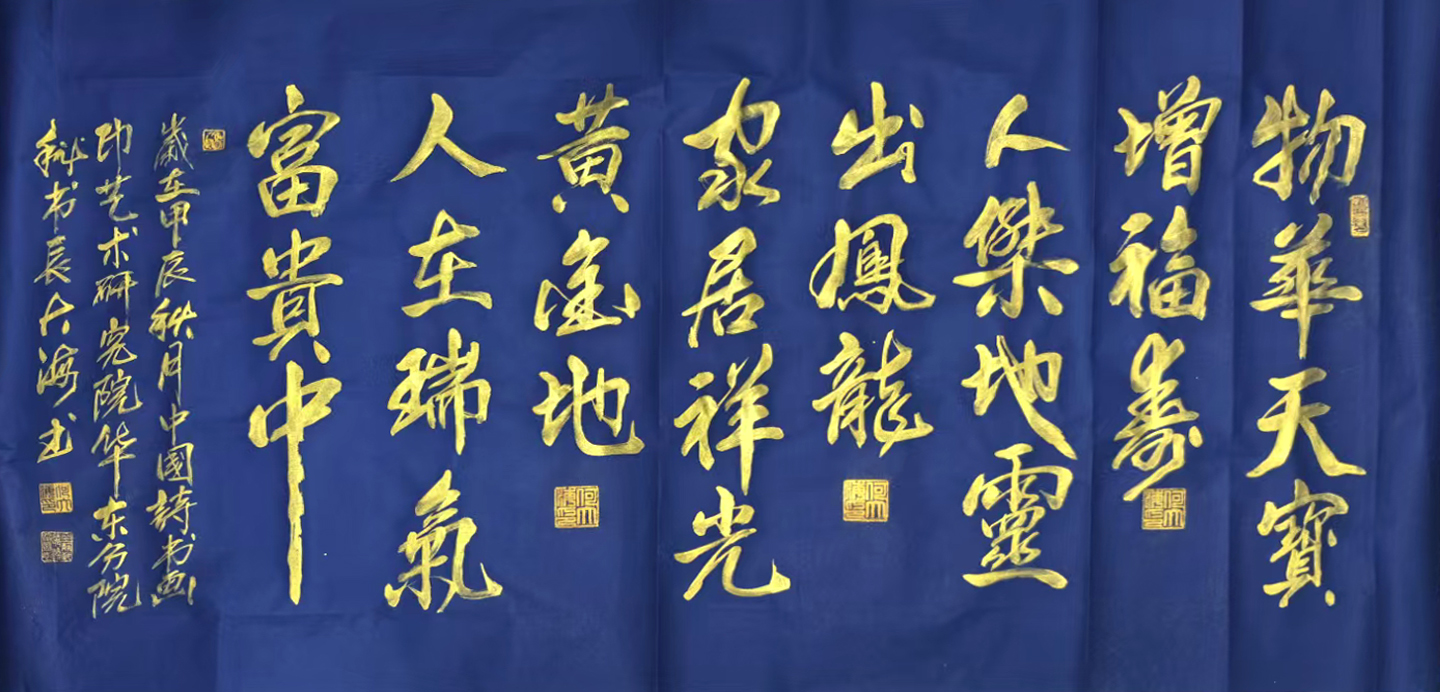 物華天寶
增福壽
人傑地靈
出鳳龍
家居祥光
黃金地
人在瑞氣
富貴中
歲在甲辰秋月中國詩书画
印艺术研究院华东分院
秘书長大海书